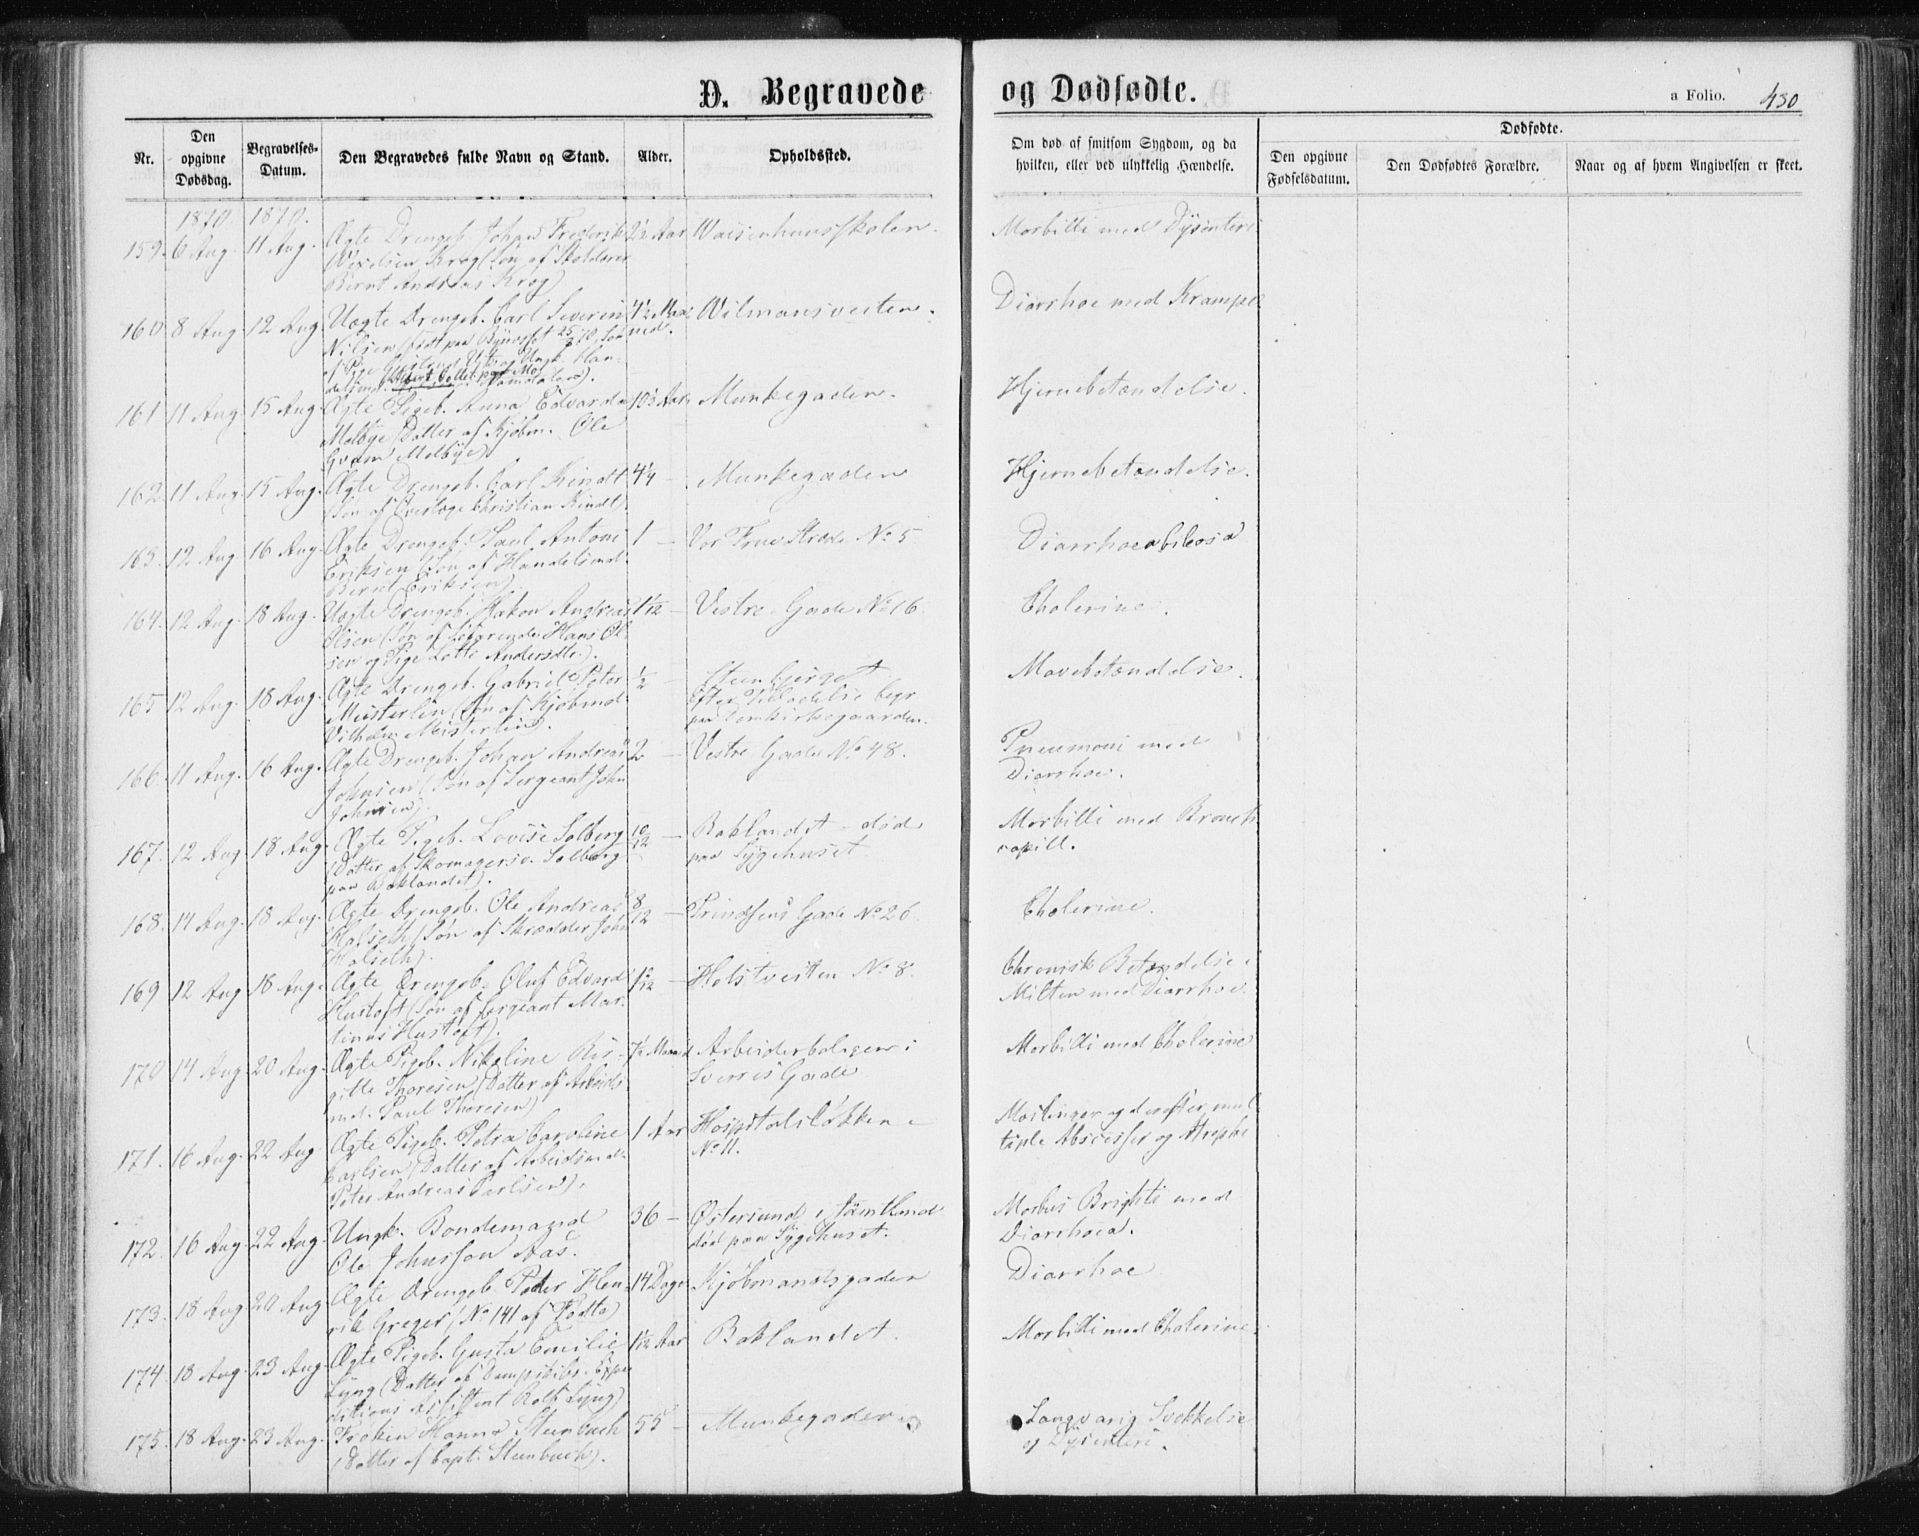 D. Begravede og Dødfødte.
a Folio. 430
Nr.
Den opgivne Dødsdag.
Begravelses-Datum.
Den Begravedes fulde Navn og Stand.
Alder.
Opholdssted.
Om død af smitsom Sygdom, og da hvilken, eller ved ulykkelig Hændelse.
Dødfødte.
Den opgivne Fødselsdatum.
Den Dødfødtes Forældre.
Naar og af hvem Angivelsen er skeet.
1870. 1870.
159. 6 Aug. 11 Aug. Ægte Drengeb. Johan Frederik 2½ Aar Waisenhuusskolen. Morbilli med Dysenteri
Krog (Søn af Skolelærer
Bernt Andreas Krog)
160. 8 Aug. 12 Aug. Uægte Drengeb. Carl Severin 4½ Maaned. Wilmansveiten. Diarrhoe med Krampe
Nilsen (født paa Bynesset 25/3 70, Søn
af Pige
161. 11 Aug. 15 Aug. Ægte Pigeb. Anna Edvarda 10½ Aar. Munkegaden. Hjernebetændelse.
Melbye (Datter af Kjøbm. Ole
Melbye)
162. 11 Aug. 15 Aug. Ægte Drengeb. Carl Kindt 4¼ — Munkegaden Hjernebetændelse.
(Søn af Overlæge Christian Kindt).
163. 12 Aug. 16 Aug. Ægte Drengeb. Paul Antoni 1 — Vor Frue Stræde No 5 Diarrhoea biliosa
Eriksen (Søn af Handelsmd.
Bernt Eriksen)
164. 12 Aug. 18 Aug. Uægte Drengeb. Hakon Andreas 1 1/12 — Vestre Gade No 16. Cholerine.
Olsen (Søn af Søfarende Hans Ol-
sen og Pige Lotte Andersdtr.).
165 12 Aug. 18 Aug. Ægte Drengeb. Gabriel Peter ½ — Steenberget Mavebetændelse.
Meisterlin (Søn af Kjøbmd. Efter Tilladelse begr.
Vilhelm Meisterlin). paa Domkirkegaarden.
166. 11 Aug. 16 Aug. Ægte Drengeb. Johan Andreas 2 — Vestre Gade No 48. Pneumoni med
Johnsen (Søn af Sergeant John Diarrhoe.
Johnsen).
167. 12 Aug. 18 Aug. Ægte Pigeb. Lovise Solberg 10/12 — Baklandet – død Morbilli med Bronch.
(Datter af Skomagersv. Solberg paa Sygehuset capill.
paa Baklandet).
168. 14 Aug. 18 Aug. Ægte Drengeb. Ole Andreas 8/12 — Prindsens Gade No 26. Cholerine.
Halseth (Søn af Skrædder John
Halseth).
169 12 Aug. 18 Aug. Ægte Drengeb. Oluf Edvard — Holstveiten No 8. Chronisk Betændelse i
Hustoft (Søn af Sergeant Mar- Milten med Diarrhoe.
tinus Hustoft).
170 14 Aug. 20 Aug. Ægte Pigeb. Nikoline Bir- 7½ Maaned Arbeiderboligen i Morbilli med Cholerine
gitte Thoresen (Datter af Arbeids- Sverres Gade
md. Paul Thoresen)
171. 16 Aug. 22 Aug. Ægte Pigeb. Petra Caroline 1 Aar Hospitalsløkken Mæslinger og derefter mul-
Carlsen (Datter af Arbeidsmd. No 11. tiple Abscesser og Atrophi
Peter Andreas Carlsen).
172. 16 Aug. 22 Aug. Ungk. Bondemand 36 — Østersund i Jämtland Morbus Brighti med
Ole Johnsson Aas. død paa Sygehuset. Diarrhoea.
173. 18 Aug. 20 Aug. Ægte Drengeb. Peder Hen- 14 Dage Kjøbmandsgaden Diarrhoe
rik Greger (No 141 af Fødte)
174. 18 Aug. 23 Aug. Ægte Pigeb. Gusta Emilie 1½ Aar Baklandet. Morbilli med Cholerine.
Lyng (Datter af Dampskibs-Expe-
ditions Assistent Rolf Lyng)
175. 18 Aug. 23 Aug. Frøken Hanna Steenbuch 55 — Munkegaden Langvarig Svækkelse
(Datter af Capt. Steenbuch). og Dysenteri.